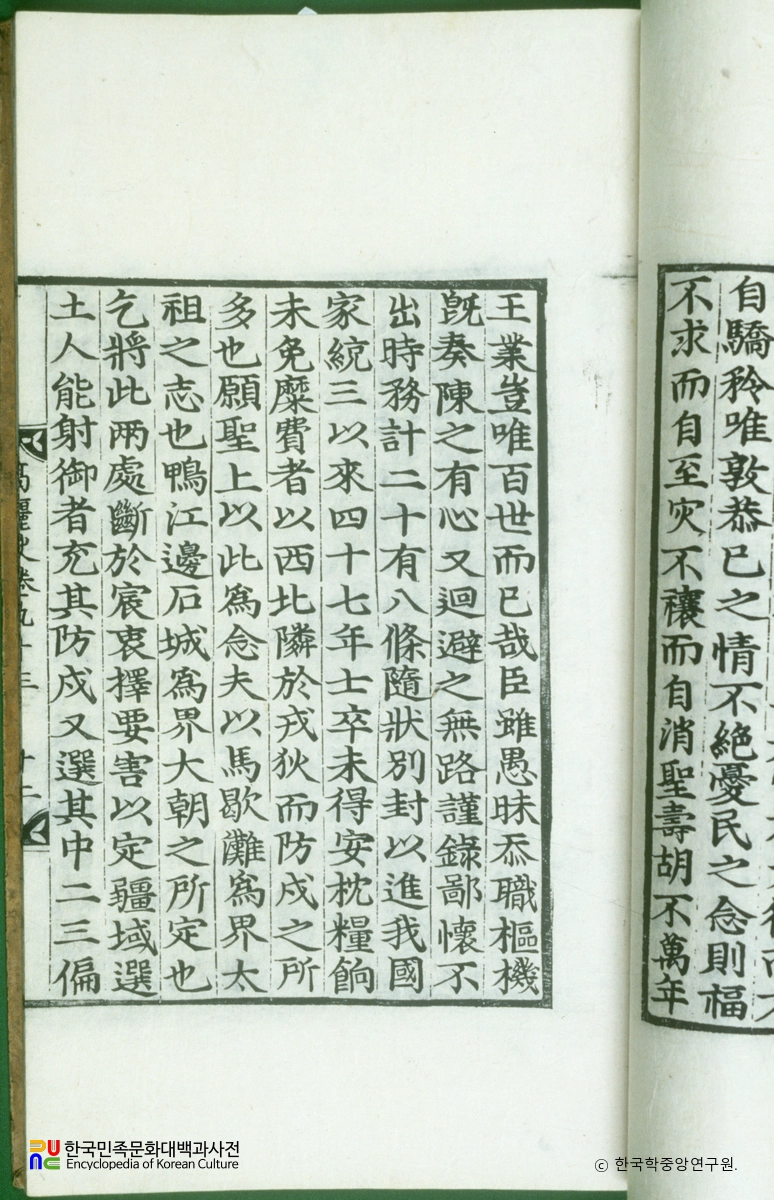 自驕矜唯敦恭已之情不絶憂民之念則福
不求而自至灾不禳而自消聖壽胡不萬年
王業豈唯百世而已哉臣雖愚昧忝職樞機
旣奏陳之有心又迴避之無路謹錄鄙懷不
出時務計二十有八條隨狀別封以進我國
家統三以來四十七年士卒未得安枕糧餉
未免糜費者以西北隣於戎狄而防戍之所
多也願聖上以此爲念夫以馬歇灘爲界太
祖之志也鴨江邊石城爲界大朝之所定也
乞將此兩處斷於宸衷擇要害以定疆域選
土人能射御者充其防戍又選其中二三偏
高麗史卷九十三 十二
한국민족문화대백과사전
Encyclopedia of Korean Culture
ⓒ 한국학중앙연구원.